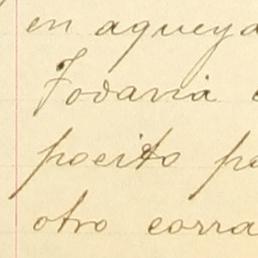 en aqueya
Todavia
pocito
otro corra